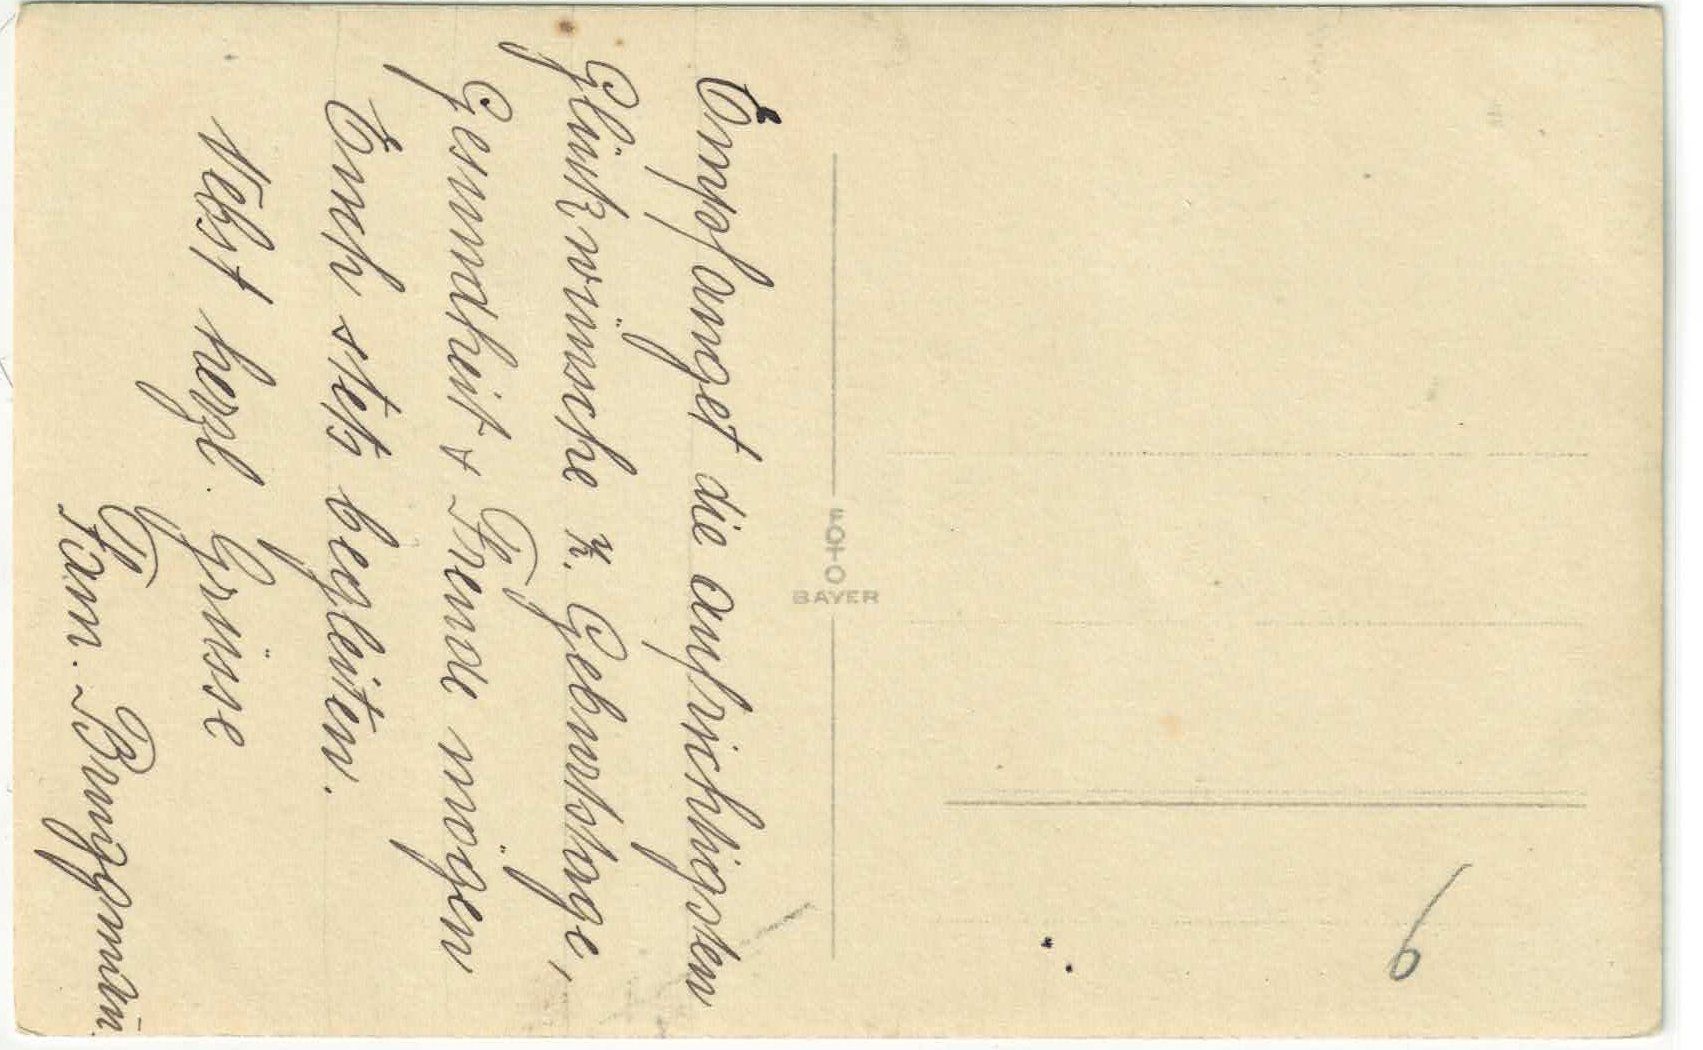 Empfanget die aufrichtigsten
Glückwünsche z. Geburtstage,
Gesundheit & Freude mögen
Euch stets begleiten.
Nebst herzl. Grüsse
Fam.
FOTO
BAYER
6